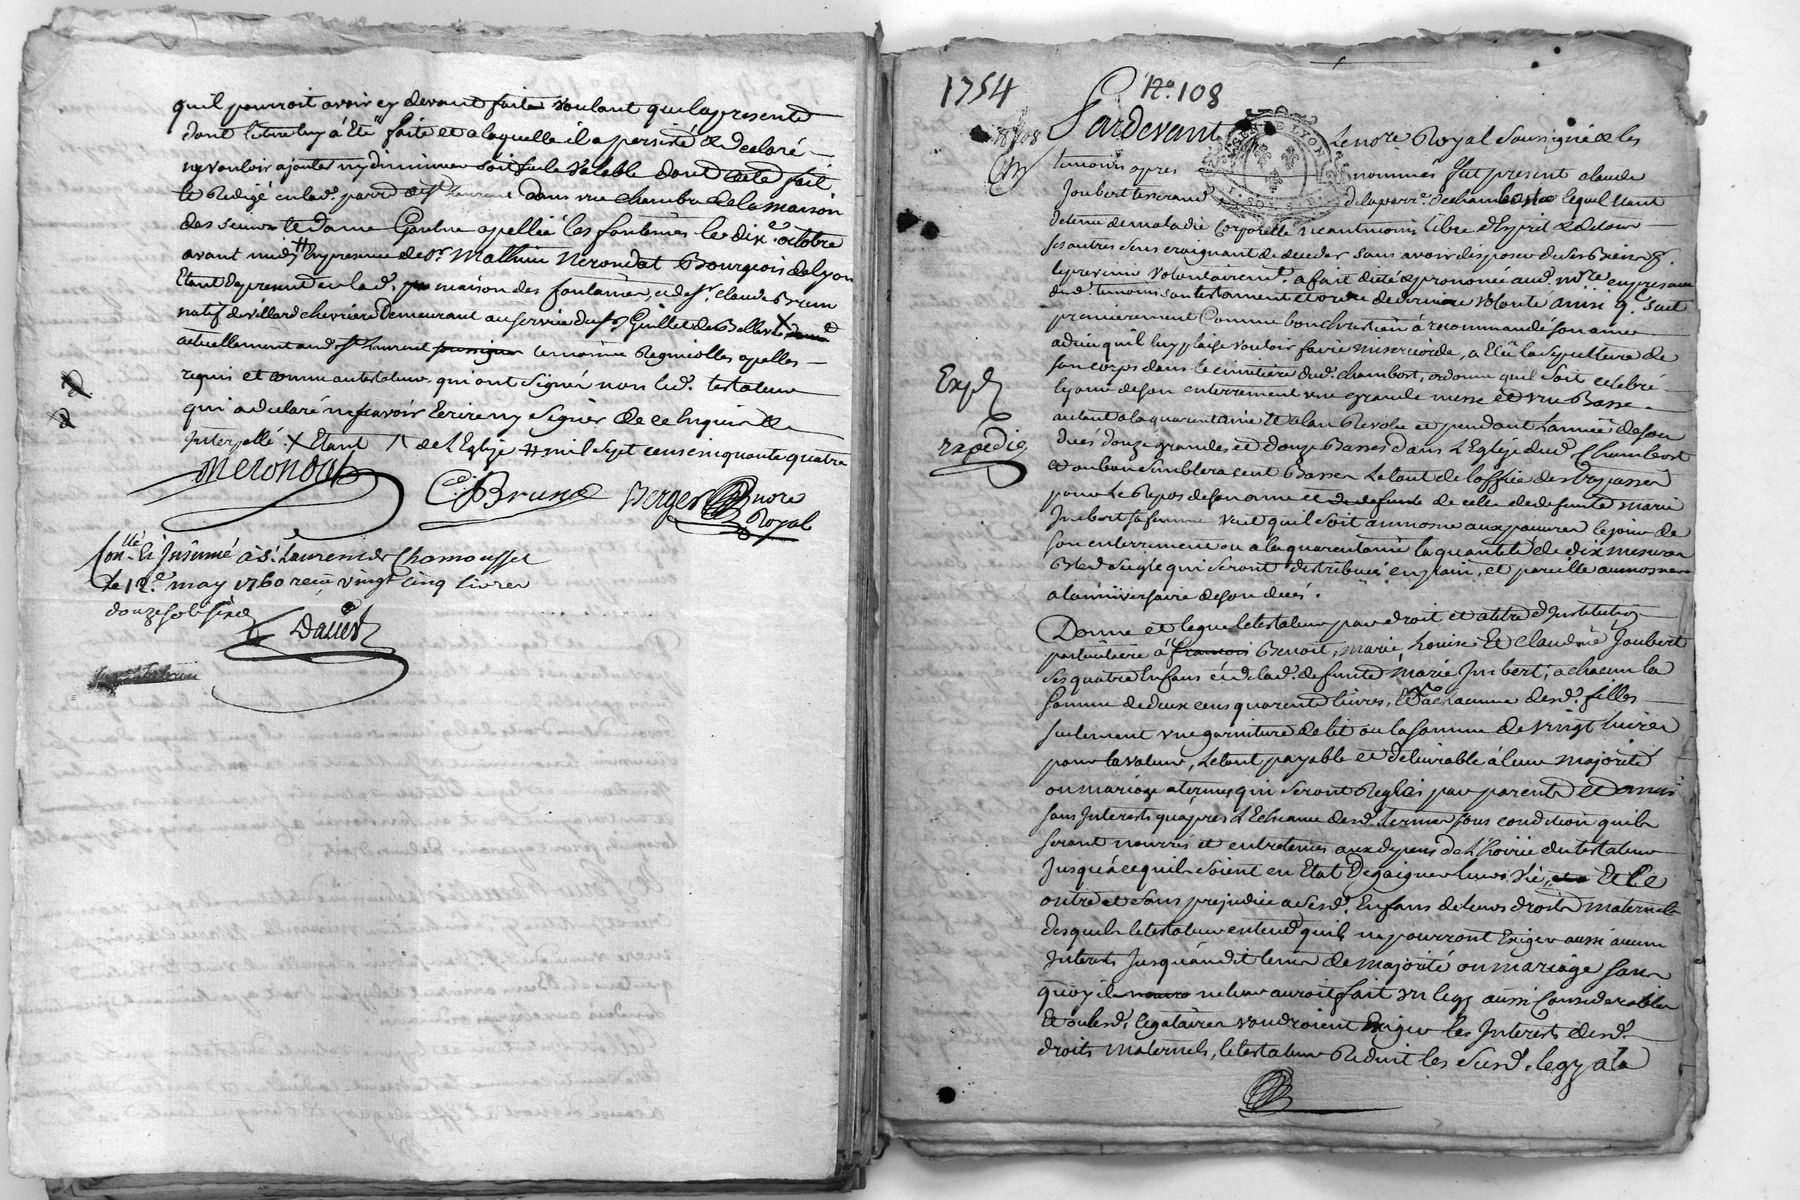 quil pourroit avoir cy devant faite voulant que la presente
dont lecture luy à Eté faite et a laquelle il a persisté & declaré
ny vouloir ajouter ny diminuer soit seule valable dont acte fait
et Redigé en lad. parr. de St Laurent dans une chambre de la maison
des sieurs et dame appellée les fontaines le dix.e octobre
avant midy # En presence de Sr. Mathieu Nerondat Bourgeois de Lyon
Etant de present en lad. maison des fontaines, et de Sr. claude Brun
natif de villard chevriere Demeurant au service du Sr Guillet de Bellevüe X
actuellement aud. St Laurent soussignes temoins Requis et appelles
requis et comme au testateur qui ont signé non led. testateur
qui a declaré ne scavoir Ecrire ny signer de ce Enquis &
Interpellé. X Etant /\ de L'Eglize # mil sept cens cinquante quatre
Nerondat
C. Brun
Berger nore
Royal
Con.llé & Insinué à St. Laurent de Chamousset
Le 12.e may 1760 reçu vingt cinq livres
douze sols six d
Daués
1754
No. 108
Pardevant
GENER. DE LYON
Le nore Royal soussigné & les
temoins apres
nommés fut present claude
Joubert tisserand
de la parr.e de chambost lequel Etant
detenu de maladie corporelle neantmoins libre d'Esprit & de tous
ses autres sens craignant de deceder sans avoir disposer de ses Biens
de son gré volontairemt. a fait dicté & prononcé aud. nore en presence
desd. temoins son testament et ordre de derniere volonté ainsi q. suit
premierement Comme bon chretien à recommandé son ame
a dieu quil luy plaise vouloir faire misericorde, a Elû la sepulture de
son corps dans le cimitiere dud. chambost, ordonne quil soit celebré
le jour de son enterrement une grande messe et une Basse
autant a la quarantaine Et a l'an Revolu et pendant l'année de son
deces douze grandes et douze Basses dans L'Eglize dud. Chambost
et ou bon semblera cent Basses Le tout de l'office des trepassés
pour Le Repos de son ame et de celle de defunte marie
Imbert sa femme veut quil soit aumoné aux pauvres le jour de
son enterrement ou a la quarantaine la quantité de dix mesures
Bled seigle qui seront distribués en pain, et pareille aumosne
a l'anniversaire de son deces.
Donne et legue le testateur par droit et a titre d'Institution
particuliere à francois Benoit, marie, Louise Et Claudine Joubert
ses quatre Enfans & de lad. defunte marie Imbert; a chacun la
somme de deux cens quarente livres, Et a chacune desd. filles
seulement une garniture de lit ou la somme de vingt livres
pour la valeur, Le tout payable et delivrable à leur majorité
ou mariage a termes qui seront Reglés par parents et amis
sans Interests qu'apres L'Echeance desd. termes sous condition quils
seront nourris et entretenus aux depens de L'hoirie du testateur
Jusqu'à ce quils soient en Etat De gaigner leurs vie, et ce
outre et sans prejudice a sesd. Enfans de leurs droits maternels
desquels le testateur entend quils ne pourront Exiger aussi aucun
Interests Jusqu'audit tems de majorité ou mariage sans
quoy il ne leur auroit fait un legs aussi considerable
Et ou lesd. legataires voudroient Exiger les Interests desd.
droits maternels, le testateur Reduit les susd. legs a la
Expd
expedié